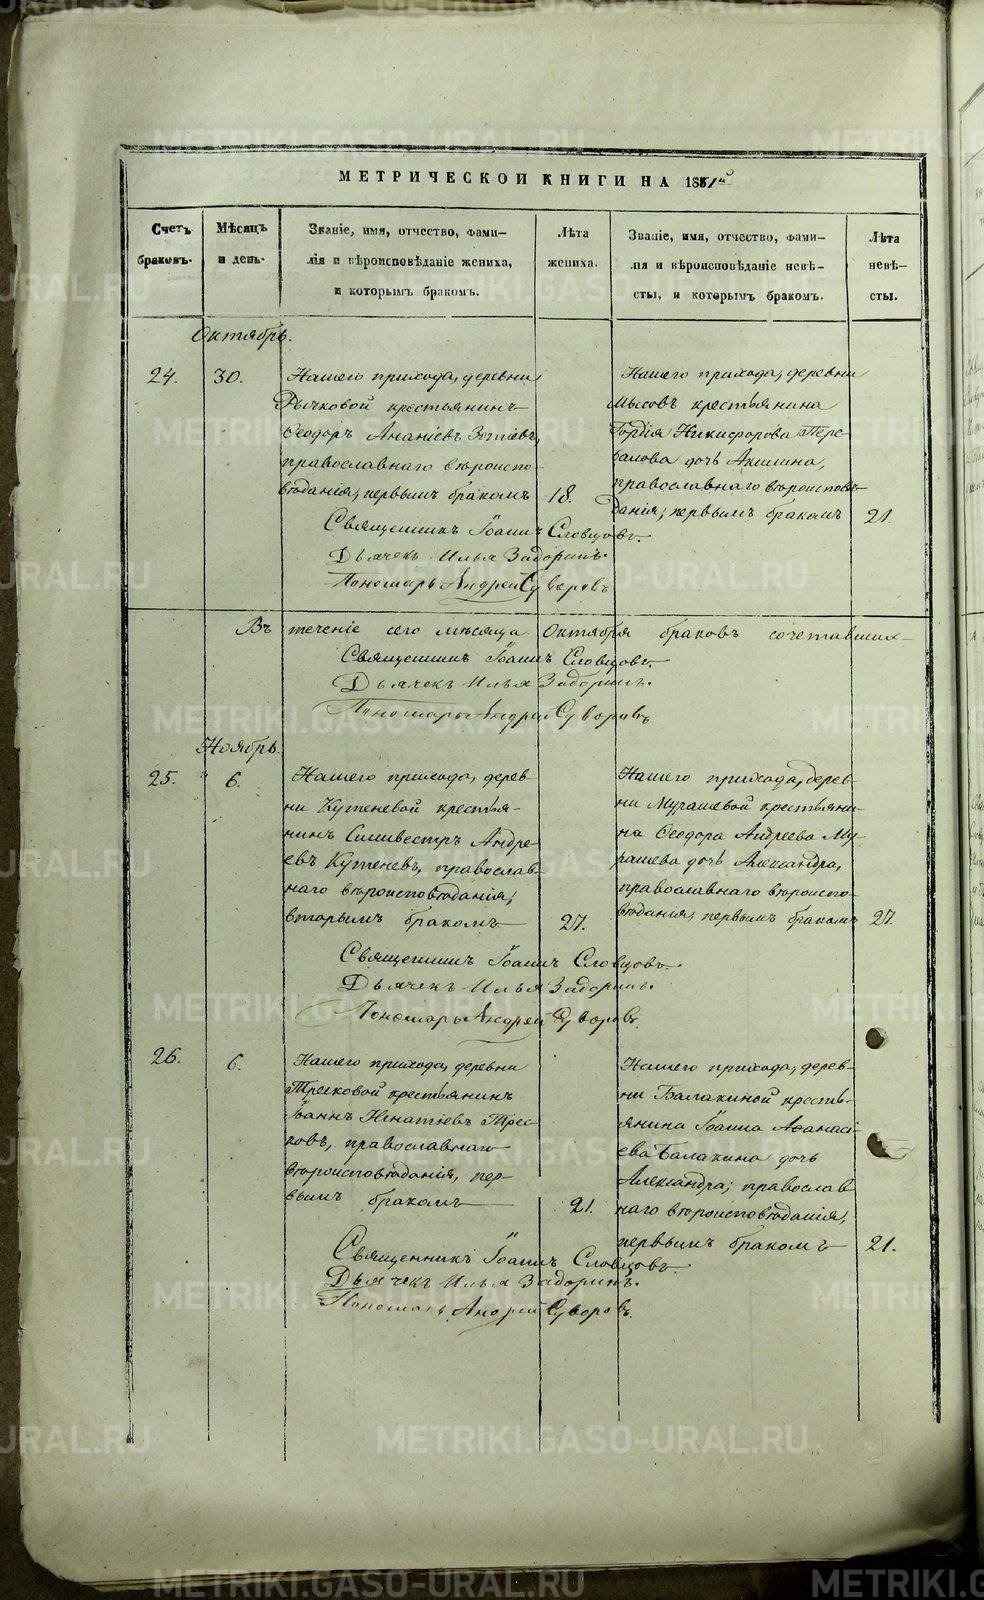 МЕТРИЧЕСКОЙ КНИГИ НА 1851й
Счетъ браковъ.
Мѣсяцъ и день.
Званіе, имя, отчество, фами-
лія и вѣроисповѣданіе жениха,
и которымъ бракомъ.
Лѣта жениха.
Званіе, имя, отчество, фами-
лія и вѣроисповѣданіе невѣ-
сты, и которымъ бракомъ.
Лѣта невѣ-
сты.
Октябрь.
24.
30.
Нашего прихода, деревни
Рычковой крестьянинъ
Ѳеодоръ Ананіевъ Зотіевъ,
православнаго вѣроиспо-
вѣданія, первымъ бракомъ
18.
Нашего прихода, деревни
Мысовъ крестьянина
Гордія Никифорова Пере-
валова дочь Акилина,
православнаго вѣроисповѣ-
данія, первымъ бракомъ
21.
Священникъ Іоаннъ Словцовъ.
Дьячекъ Илья Задоринъ.
Пономарь Андрей Суворовъ
Въ теченіе сего мѣсяца Октября браковъ сочетавших-
Священникъ Іоаннъ Словцовъ.
Дьячекъ Илья Задоринъ.
Пономарь Андрей Суворовъ
Ноябрь.
25.
6.
Нашего прихода, дерев-
ни Кутеневой крестья-
нинъ Силивестръ Андре-
евъ Кутеневъ, православ-
наго вѣроисповѣданія,
вторымъ бракомъ
27.
Нашего прихода, дерев-
ни Мурашевой крестьяни-
на Ѳеодора Андреева Му-
рашева дочь Александра,
православнаго вѣроиспо-
вѣданія, первымъ бракомъ
27.
Священникъ Іоаннъ Словцовъ.
Дьячекъ Илья Задоринъ.
Пономарь Андрей Суворовъ.
26.
6.
Нашего прихода, деревни
Тресковой крестьянинъ
Іоаннъ Игнатіевъ Трес-
ковъ, православнаго
вѣроисповѣданія, пер-
вымъ бракомъ
21.
Нашего прихода, дерев-
ни Балакиной кресть-
янина Іоанна Аѳанасі-
ева Балакина дочь
Александра, православ
наго вѣроисповѣданія,
первымъ бракомъ
21.
Священникъ Іоаннъ Словцовъ.
Дьячекъ Илья Задоринъ.
Пономарь Андрей Суворовъ.
METRIKI.GASO-URAL.RU